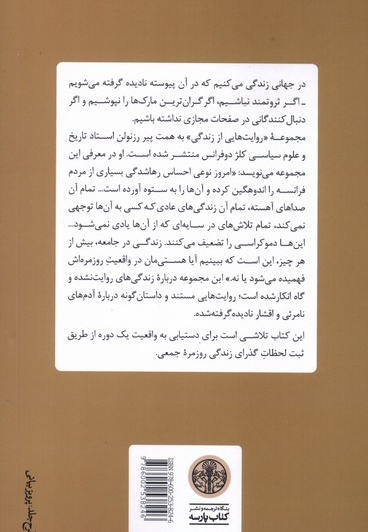 در جهانی زندگی می‌کنیم که در آن پیوسته نادیده گرفته می‌شویم
ـ اگر ثروتمند نباشیم، اگر گران‌ترین مارک‌ها را نپوشیم و اگر
دنبال‌کنندگانی در صفحات مجازی نداشته باشیم.
مجموعۀ «روایت‌هایی از زندگی» به همت پیر رزنولن استاد تاریخ
و علوم سیاسی کلژ دوفرانس منتشر شده است. او در معرفی این
مجموعه می‌نویسد: «امروز نوعی احساس رهاشدگی بسیاری از مردم
فرانسه را اندوهگین کرده و آن‌ها را به ستوه آورده است... تمام آن
صداهای آهسته، تمام آن زندگی‌های عادی که کسی به آن‌ها توجهی
نمی‌کند، تمام تلاش‌های در سایه‌ای که از آن‌ها یادی نمی‌شود...
این‌ها دموکراسی را تضعیف می‌کنند. زندگی در جامعه، بیش از
هر چیز، این است که ببینیم آیا هستی‌مان در واقعیتِ روزمره‌اش
فهمیده می‌شود یا نه.» این مجموعه دربارۀ زندگی‌های روایت‌نشده و
گاه انکارشده است؛ روایت‌هایی مستند و داستان‌گونه دربارۀ آدم‌های
نامرئی و اقشار نادیده‌گرفته‌شده.
این کتاب تلاشی است برای دستیابی به واقعیت یک دوره از طریق
ثبت لحظاتِ گذرای زندگی روزمرۀ جمعی.
ISBN 978-600-253-824-6
9786002538246
بنگاه ترجمه و نشر
کتاب پارسه
طرح جلد: پرویز بیانی